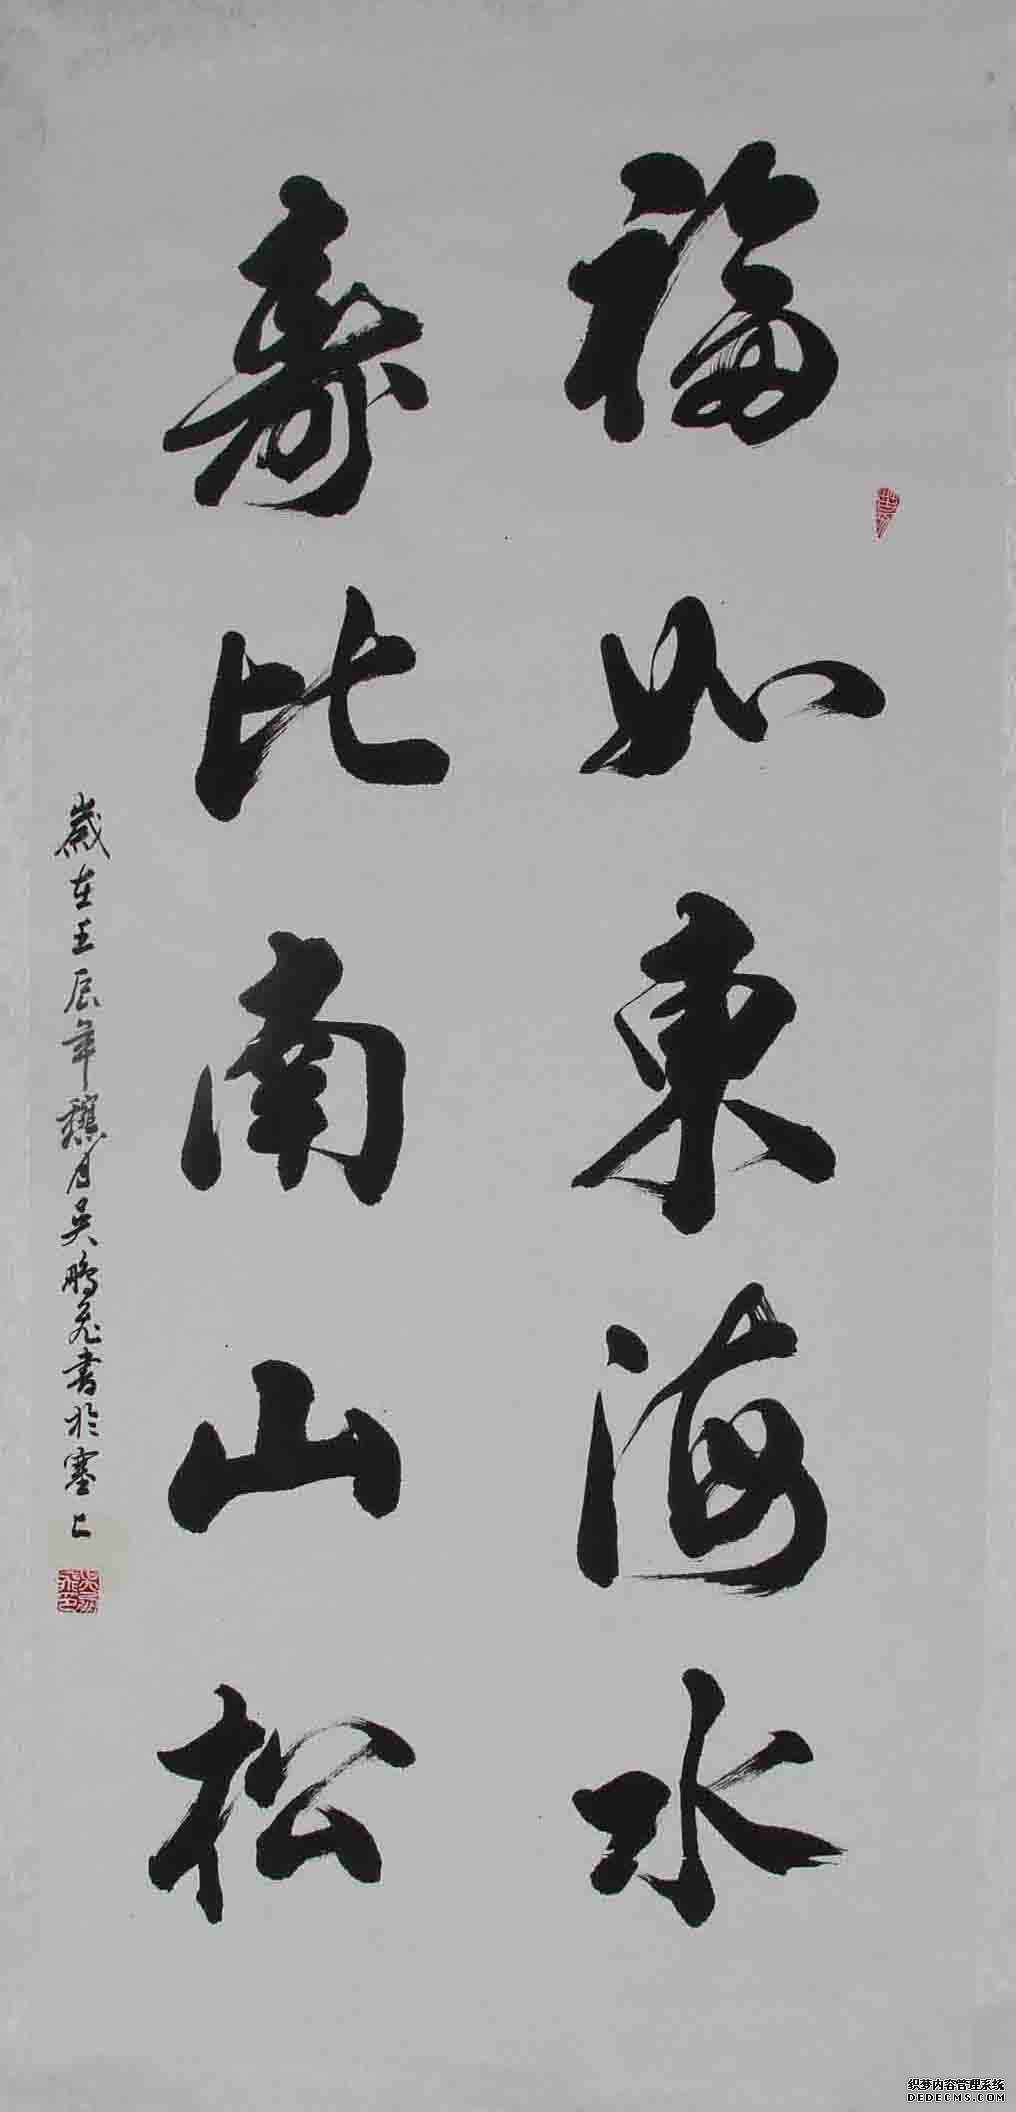 福如東海水
壽比南山松
歲在壬辰年穐月吴鵬飛書於塞上
织梦内容管理系统
DEDECMS.COM